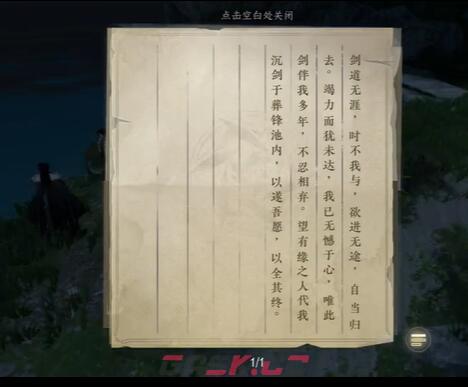 点击空白处关闭
剑道无涯，时不我与，欲进无途，自当归
去。竭力而犹未达，我已无憾于心，唯此
剑伴我多年，不忍相弃。望有缘之人代我
沉剑于葬锋池内，以遂吾愿，以全其终。
1/1